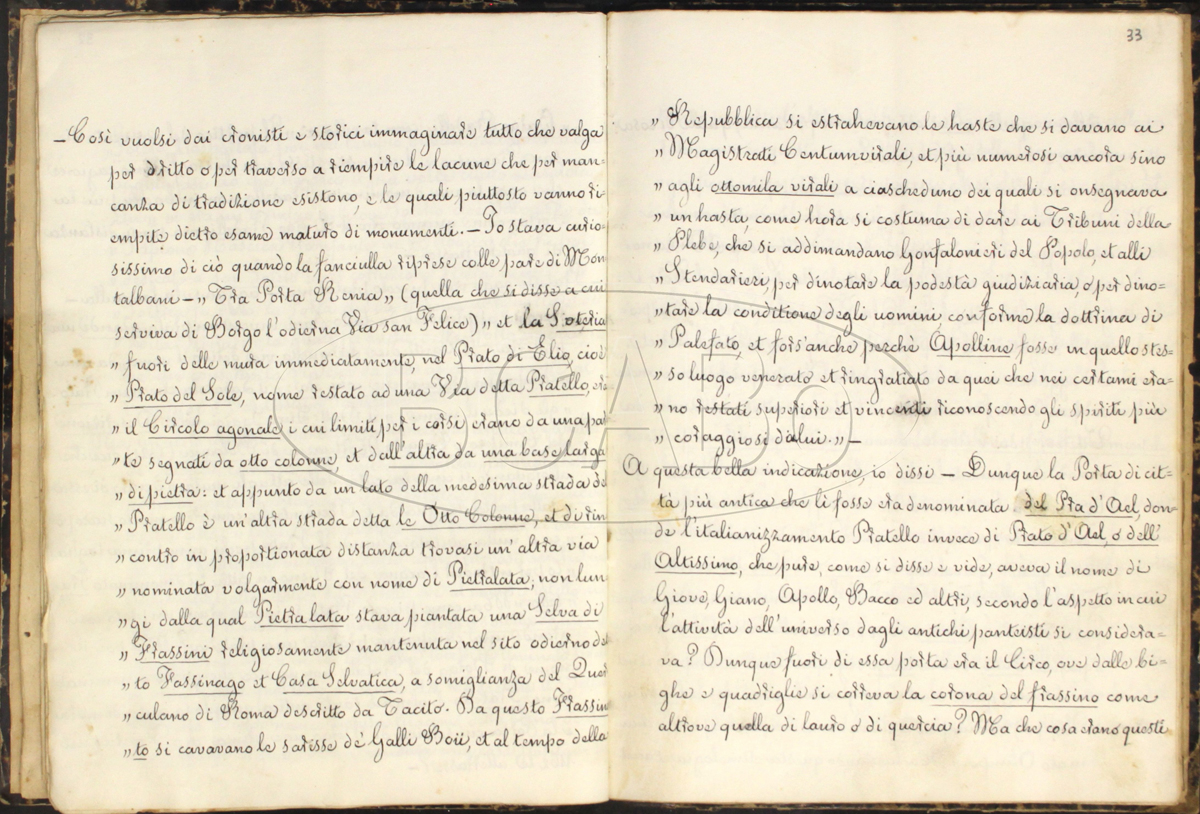 – Così vuolsi dai cronisti e storici immaginare tutto che valga
per dritto o per traverso a riempire le lacune che per man=
canza di tradizione esistono, e le quali piuttosto vanno ri=
empite dietro esame maturo di monumenti. – Io stava curio=
sissimo di ciò quando la fanciulla riprese colle parole di Mon
talbani – „ Tra Porta Renia „ (quella che si disse a cui
serviva di Borgo l'odierna Via san Felice) „ et la Soteria
„ fuori delle mura immediatamente, nel Prato di Elio, cioè
„ Prato del Sole, nome restato ad una Via detta Pratello, era
„ il Circolo agonale i cui limiti (per i corsi) erano da una par
„ te segnati da otto colonne, et dall'altra da una base larga
„ di pietra: et appunto da un lato della medesima strada del
„ Pratello è un'altra strada detta le Otto Colonne, et di rin
„ contro in proportionata distanza trovasi un'altra via
„ nominata volgarmente con nome di Pietralata, non lun
„ gi dalla qual Pietra lata stava piantata una Selva di
„ Frassini religiosamente mantenuta nel sito odierno det
„ to Fassinago et Casa Selvatica, a somiglianza del Quer
„ culano di Roma descritto da Tacito. Da questo Frassin
„ to si cavavano le sarisse de' Galli Boii, et al tempo della
33
„ Repubblica si estrahevano le haste che si davano ai
„ Magistrati Centumvirali, et più numerosi ancora sino
„ agli ottomila virali a ciascheduno dei quali si onsegnava
„ un hasta, come hora si costuma di dare ai Tribuni della
„ Plebe, che si addimandano Gonfalonieri del Popolo, et alli
„ Stendarieri, per dinotare la podestà giudiziaria, o per dino=
„ tare la conditione degli uomini conforme la dottrina di
„ Palefato, et fors'anche perchè Apolline fosse in quello stes=
„ so luogo venerato et ringratiato da quei che nei certami era=
„ no restati superiori et vincenti riconoscendo gli spiriti più
„ coraggiosi da lui. „ –
A questa bella indicazione, io dissi – Dunque la Porta di cit=
tà più antica che li fosse era denominata del Pra d'Ael, don=
de l'italianizzamento Pratello invece di Prato d'Ael, o dell'
Altissimo, che pure, come si disse e vide, aveva il nome di
Giove, Giano, Apollo, Bacco ed altri, secondo l'aspetto in cui
l'attività dell'universo dagli antichi panteisti si considera=
va? Dunque fuori di essa porta era il Circo, ove dalle bi=
ghe e quadriglie si correva la corona del frassino come
altrove quella di lauro o di quercia? Ma che cosa erano questi